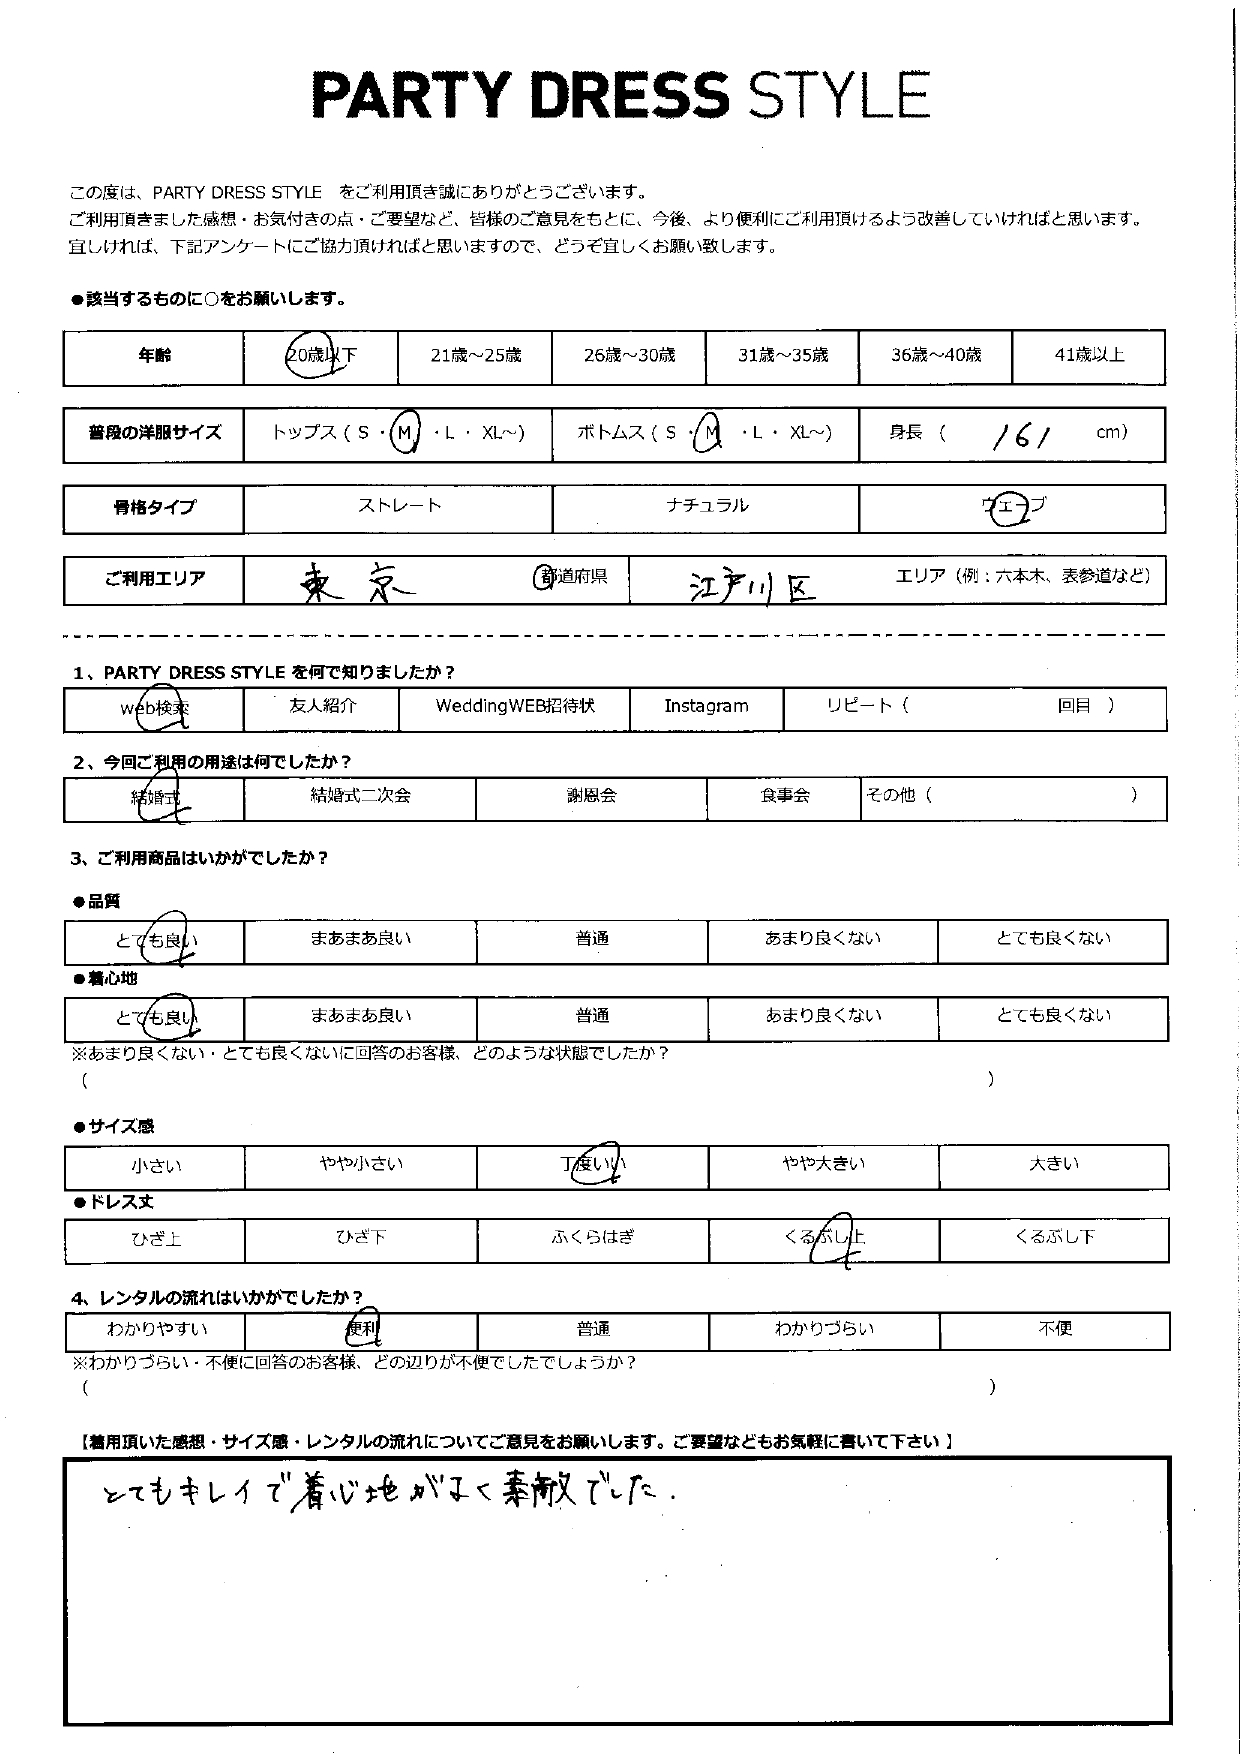 PARTY DRESS STYLE
この度は、PARTY DRESS STYLE　をご利用頂き誠にありがとうございます。
ご利用頂きました感想・お気付きの点・ご要望など、皆様のご意見をもとに、今後、より便利にご利用頂けるよう改善していければと思います。
宜しければ、下記アンケートにご協力頂ければと思いますので、どうぞ宜しくお願い致します。
●該当するものに○をお願いします。
年齢 20歳以下 21歳～25歳 26歳～30歳 31歳～35歳 36歳～40歳 41歳以上
普段の洋服サイズ トップス（ S ・ M ・ L ・ XL～） ボトムス（ S ・ M ・ L ・ XL～） 身長 （ 161 cm）
骨格タイプ ストレート ナチュラル ウェーブ
ご利用エリア 東京 都道府県 江戸川区 エリア（例：六本木、表参道など）
1、PARTY DRESS STYLE を何で知りましたか？
web検索 友人紹介 WeddingWEB招待状 Instagram リピート（ 回目 ）
2、今回ご利用の用途は何でしたか？
結婚式 結婚式二次会 謝恩会 食事会 その他（ ）
3、ご利用商品はいかがでしたか？
●品質
とても良い まあまあ良い 普通 あまり良くない とても良くない
●着心地
とても良い まあまあ良い 普通 あまり良くない とても良くない
※あまり良くない・とても良くないに回答のお客様、どのような状態でしたか？
（ ）
●サイズ感
小さい やや小さい 丁度いい やや大きい 大きい
●ドレス丈
ひざ上 ひざ下 ふくらはぎ くるぶし上 くるぶし下
4、レンタルの流れはいかがでしたか？
わかりやすい 便利 普通 わかりづらい 不便
※わかりづらい・不便に回答のお客様、どの辺りが不便でしたでしょうか？
（ ）
【着用頂いた感想・サイズ感・レンタルの流れについてご意見をお願いします。ご要望などもお気軽に書いて下さい 】
とてもキレイで着心地がよく素敵でした.